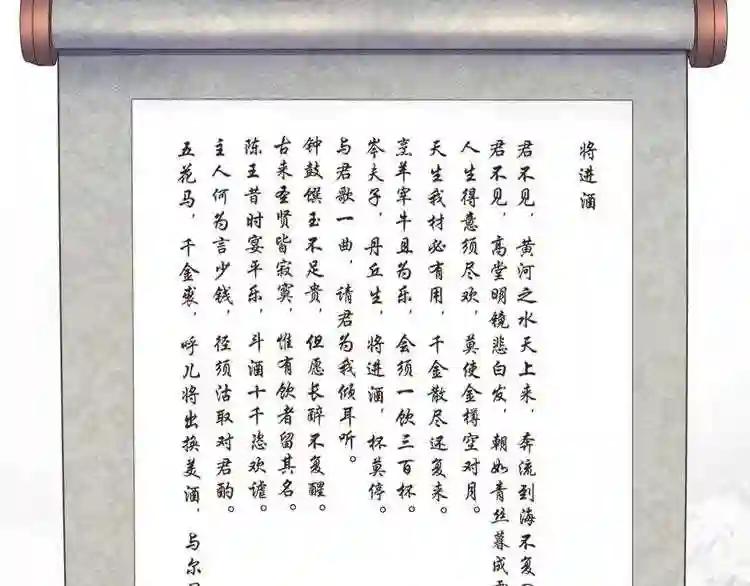 将进酒
君不见，黄河之水天上来，奔流到海不复
君不见，高堂明镜悲白发，朝如青丝暮成
人生得意须尽欢，莫使金樽空对月。
天生我材必有用，千金散尽还复来。
烹羊宰牛且为乐，会须一饮三百杯。
岑夫子，丹丘生，将进酒，杯莫停。
与君歌一曲，请君为我倾耳听。
钟鼓馔玉不足贵，但愿长醉不复醒。
古来圣贤皆寂寞，惟有饮者留其名。
陈王昔时宴平乐，斗酒十千恣欢谑。
主人何为言少钱，径须沽取对君酌。
五花马，千金裘，呼儿将出换美酒，与尔